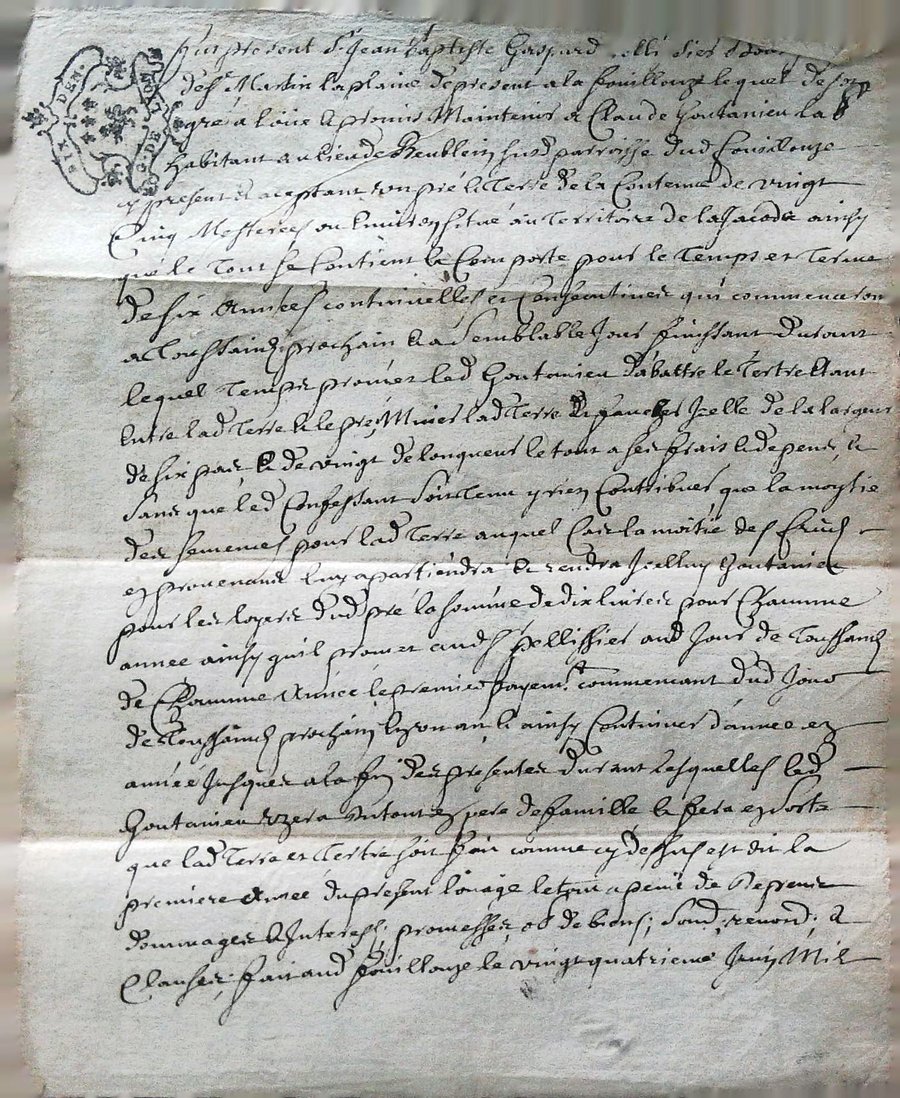 SIX DEN. G. DE LYON
Fut present Sr. Jean Baptiste Gaspard
de St. Martin la plaine depresent a la fouillouze lequel de son
gré a loüé & promis Maintenir a Claude Goutanieu la
habitant au lieu de susd. parroisse dud. fouillouze
y present & aceptant un pré & Terre de la Contenuë de vingt
Cinq Mesterees ou Environ situé au Territoire de la ainsy
que le Tout se Contient & Comporte pour le Temps et Terme
de six Années continuelles et Consecutives qui commenceron
a Toussaincts prochain & a semblable Jour finissant durant
lequel Temps promet led. Goutanieu dabattre le Tertre Etant
Entre lad. Terre & le pré, lad. Terre Icelle de la largeur
de six pas & de vingt de longueur le tout a ses frais & depens, &
sans que led. Confessant soit Tenu y rien Contribuer que la moytie
des semences pour lad. Terre auquel Cas la moitié des fruits
en provenans luy apartiendra & rendra Icelluy Goutanieu
pour les loyers dud. pré la somme de dix livres pour Chacunne
année ainsy quil promet aud. Sr. pellissier aud. Jour de Toussaincts
de Chacunne Année le premier payemt. commencant dud. Jour
de Toussaincts prochain & ainsy Continuer dannée en
année Jusques a la fin des presentes durant Lesquelles led.
Goutanieu uzera Entout en pere de famille & fera en sorte
que lad. Terre et Tertre soit fait comme cy dessus est dit la
premiere Année du present loüage le tout a peine de
dommages & Interests; promesses, ob. de biens; soud; renond; &
Clauses; fait aud. fouillouze le vingt quatrieme Juin Mil